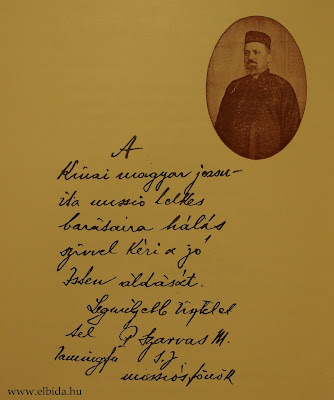 A
Kinai magyar jezsu-
ita misszió lelkes
barátaira hálás
szivvel kéri a jó
Isten áldását.
Legmélyebb tisztelet
tel P Szarvas M.
Tamingfu S.J.
missziósfőnök
www.elbida.hu